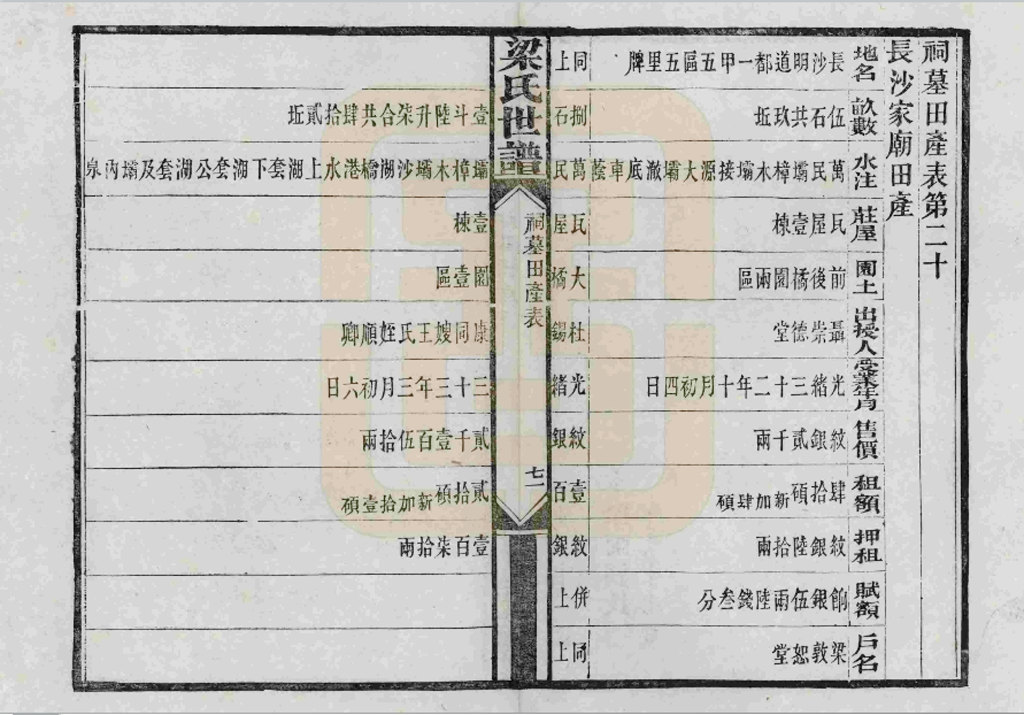 祠墓田產表第二十
長沙家廟田產
地名 長沙明道都一甲五區五里牌 同上
畝數 伍石共玖坵 捌石壹斗陸升柒合共肆拾貳坵
水注 萬民壩樟木壩接源大壩澈底車蔭 萬民壩樟木壩沙湖橋港水上湖套下湖套公湖套及壩內泉
莊屋 瓦屋壹棟 瓦屋壹棟
園土 前後橘園兩區 大橘園壹區
出授人 聶崇德堂 杜錫康同嫂王氏姪順卿
受業年月 光緒三十二年十月初四日 光緒三十三年三月初六日
售價 紋銀貳千兩 紋銀貳千壹百伍拾兩
租額 肆拾碩新加肆碩 壹百貳拾碩新加拾壹碩
押租 紋銀陸拾兩 紋銀壹百柒拾兩
賦額 餉銀伍兩陸錢叁分 併上
戶名 梁敦恕堂 同上
梁氏世譜
祠墓田產表
七一